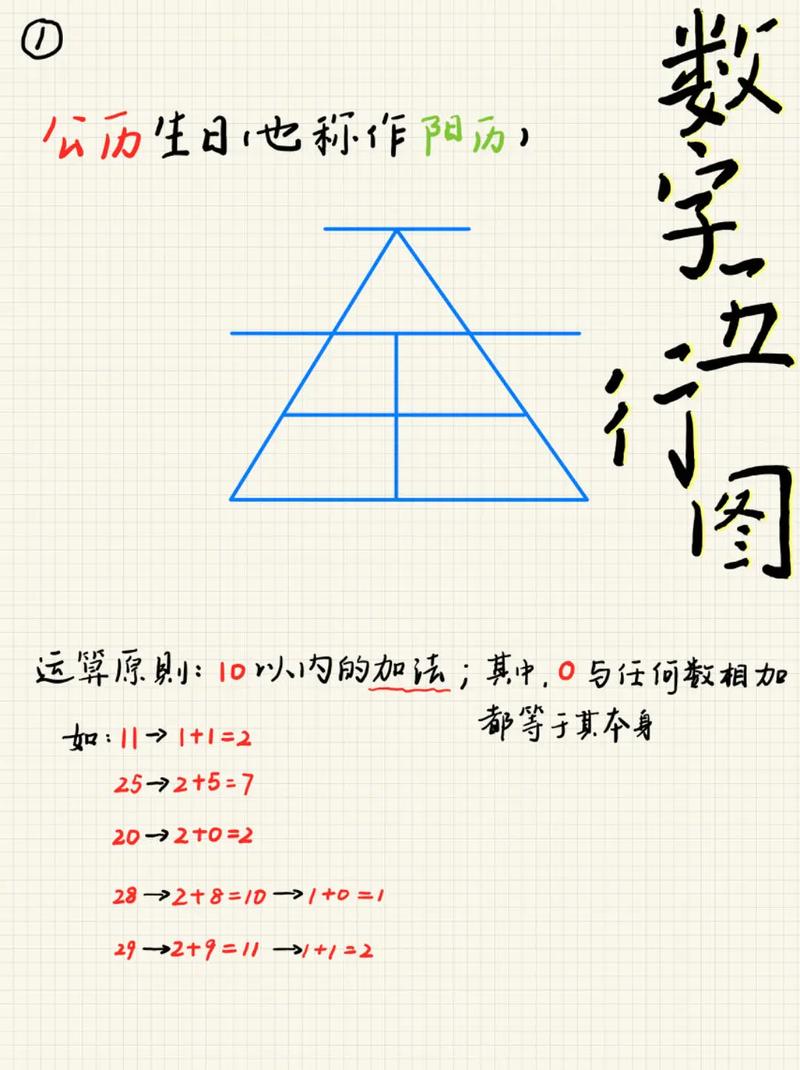 ①
数字五行图
公历生日(也称作阳历)
运算原则:10以内的加法;其中,0与任何数相加
都等于其本身
如:11→1+1=2
25→2+5=7
20→2+0=2
28→2+8=10→1+0=1
29→2+9=11→1+1=2